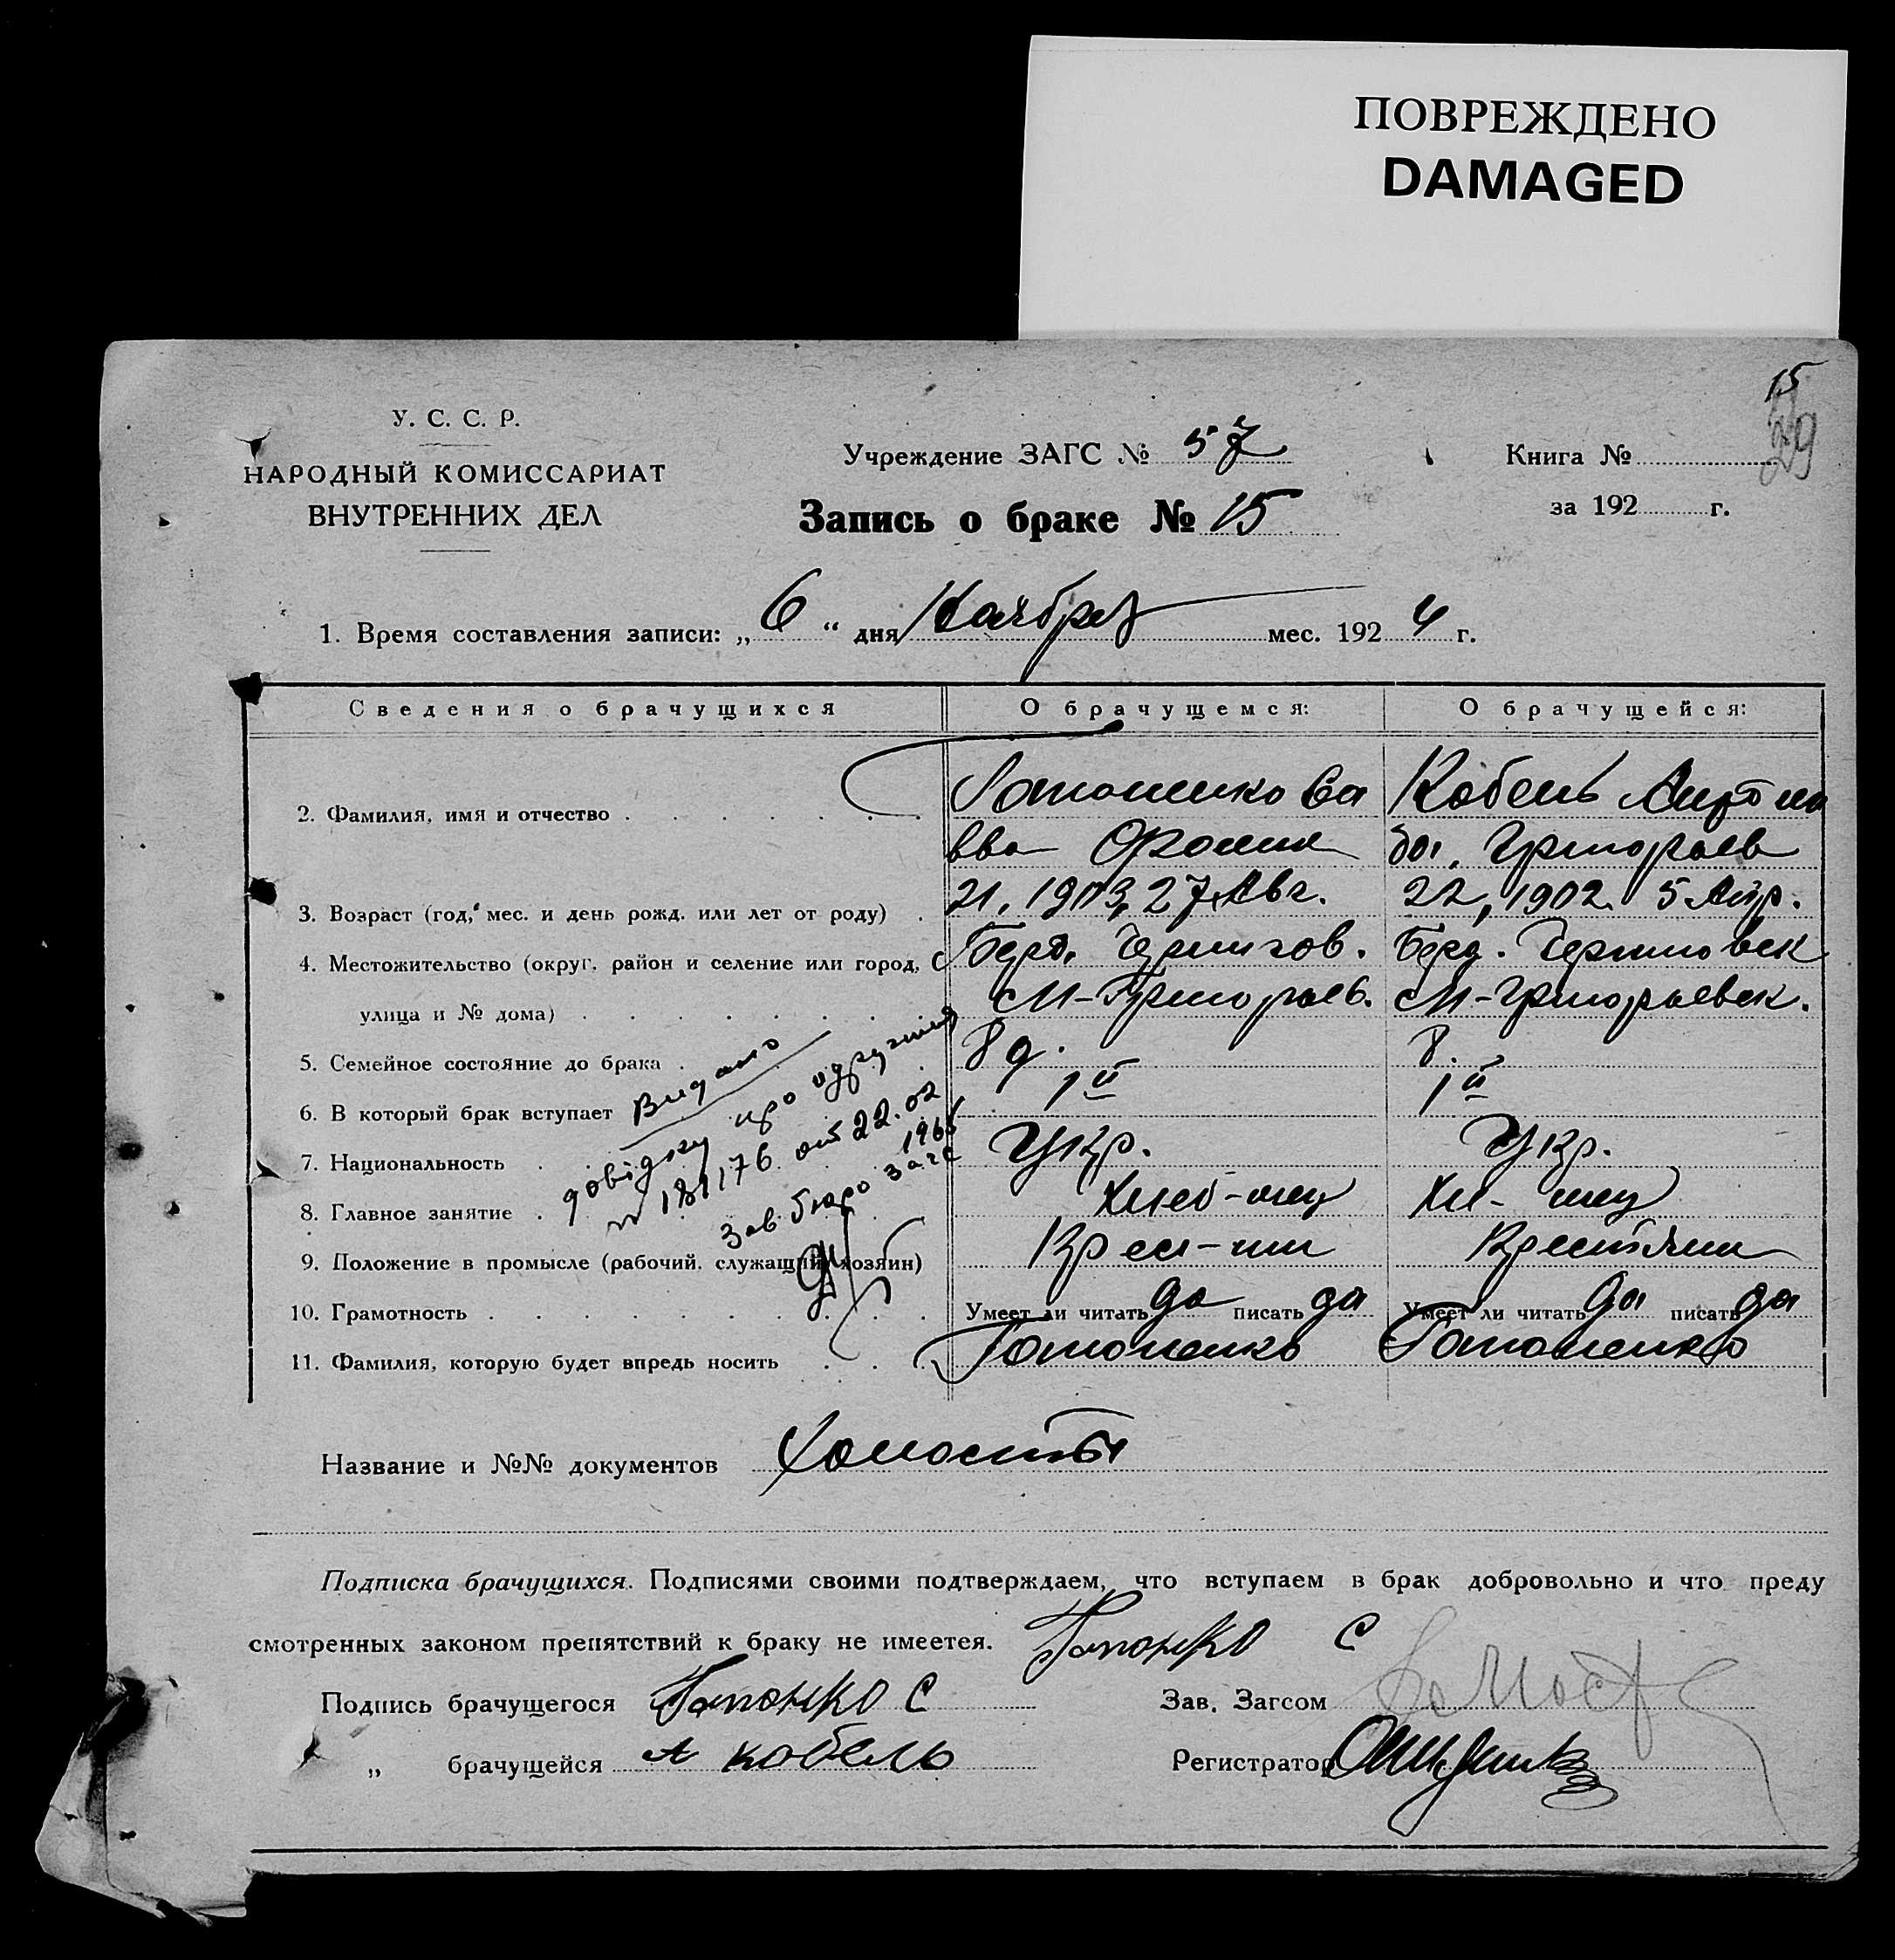 ПОВРЕЖДЕНО
DAMAGED
15
29
У. С. С. Р.
НАРОДНЫЙ КОМИССАРИАТ
ВНУТРЕННИХ ДЕЛ
Учреждение ЗАГС № 57
Книга №
за 192 г.
Запись о браке № 15
1. Время составления записи: „ 6 “ дня Ноября мес. 192 4 г.
Сведения о брачущихся О брачущемся: О брачущейся:
2. Фамилия, имя и отчество
Гапоненко Са Кобель
вва Фомич Григорьев
3. Возраст (год, мес. и день рожд. или лет от роду) 21, 1903, 27 Авг. 22, 1902. 5 Апр.
4. Местожительство (округ, район и селение или город, Берд. Чернигов. Берд. Черниговск
улица и № дома) М-Григорьев. М-Григорьевск.
5. Семейное состояние до брака 8 д. 8.
6. В который брак вступает 1й 1й
7. Национальность Укр. Укр.
8. Главное занятие Хлеб-шец Хл-шец
9. Положение в промысле (рабочий, служащий, хозяин) Крес-нин Крестянин
10. Грамотность Умеет ли читать да писать да Умеет ли читать да писать да
11. Фамилия, которую будет впредь носить Гапоненко Гапоненко
Видано
довідку про одруження
№ 181176 от 22.02
1965
Зав бюро загс
Название и №№ документов Холосты
Подписка брачущихся. Подписями своими подтверждаем, что вступаем в брак добровольно и что преду
смотренных законом препятствий к браку не имеетея. Гапонко С
Подпись брачущегося Гапонко С Зав. Загсом
„ брачущейся А кобель Регистратор